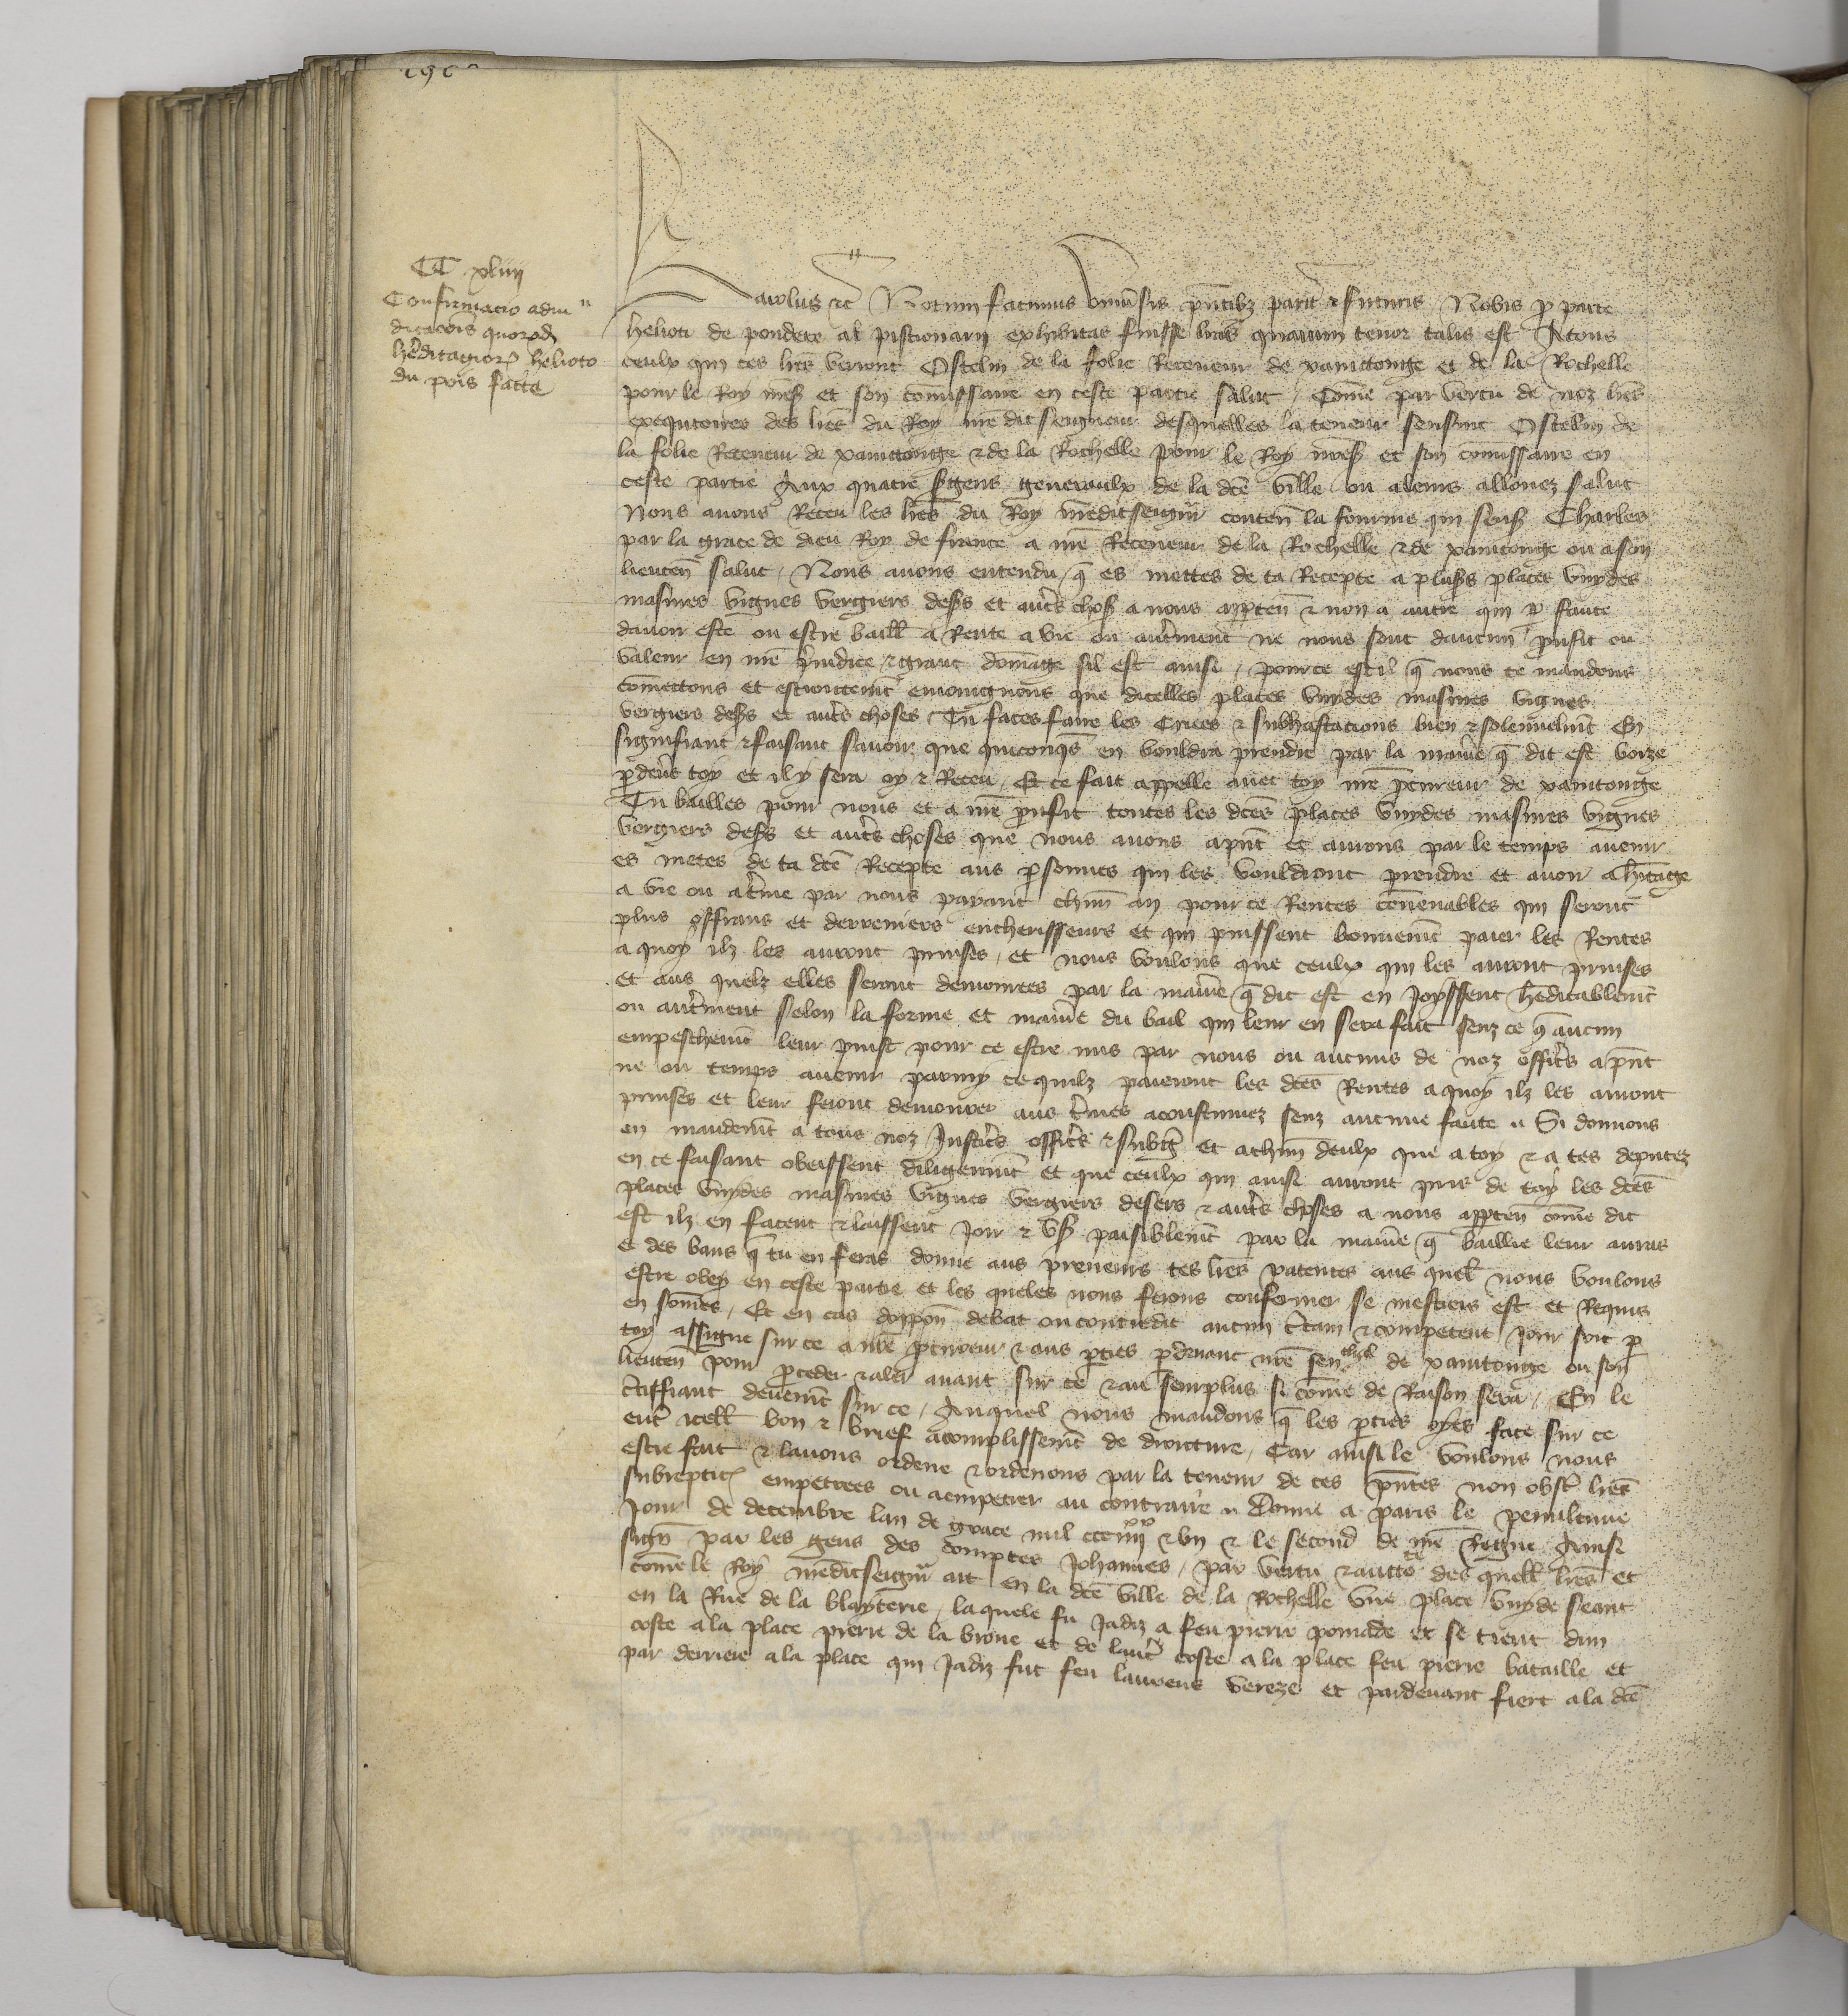 CC xliiij
Confirmacio adiu
dicacois quorod
hrditagior helioto
du pois facta
Karolus etc Notum facimus univsis pntibz parit et futuris Nobis p parte
helioti de pondere al pistionarij exhibitas fuisse lras quarum tenor talis est A tous
ceulx qui ces lres verront Ostelin de la folie Receveur de xanctonge et de la Rochelle
pour le Roy nres et son comissaire en ceste partie salut, Come par vertu de noz lres
exequtoires des lres du Roy nre dit seigneur desquelles la teneur sensuit Ostelin de
la folie Receveur de xanctonge et de la Rochelle pour le Roy nres et son comissaire en
ceste partie Aux quatre sgens generaulx de la dce ville ou a leurs allouez salut
Nous avons Receu les lres du Roy nredit seignr conten la fourme qui sens Charles
par la grace de dieu Roy de france a nre Receveur de la Rochelle et de xanctonge ou a son
lieuten salut, Nous avons entendu q es mettes de ta Recepte a pluss places vuydes
masures vignes vergiers dess et autrs chos a nous apparten et non a autre qui p faute
davoir este ou estre baill a Rente a vie ou autrment ne nous sont daucun prufit ou
valeur en nre preiudice et grant domage sil est ainsi, pource est il q nous te mandons
comettons et estroictemt enioignons que dicelles places vuydes masures vignes
vergiers dess et autrs choses Tu faces faire les Criees et subhastacions bien et solennelmt En
signifiant et faisant savoir que quiconqs en vouldra prendre par la manie q dit est voize
p devt toy et il y sera oy et Receu, Et ce fait appelle avec toy nre pcureur de xanctonge
Tu bailles pour nous et a nre prufit toutes les dces places vuydes masures vignes
vergiers dess et autrs choses que nous avons a pnt et aurons par le temps avenir
es metes de ta dce Recepte aus psonnes qui les vouldront prendre et avoir a hitage
a vie ou a trme par nous paiant chun an pour ce Rentes convenables qui seront
plus offrans et derreniers encherisseurs et qui puissent bonnemt paier les Rentes
a quoy ilz les auront prinses, et nous voulons que ceulx qui les auront prinses
et aus quelz elles seront demourees par la manie q dit est en Joyssent hreditablemt
ou autrment selon la forme et manie du bail qui leur en sera fait senz ce q aucun
empeschemt leur puist pour ce estre mis par nous ou aucuns de noz officrs a pnt
ne ou temps avenir parmy ce quilz paieront les dces Rentes a quoy ilz les auront
prinses et leur feront demourer aus trmes acoustumez senz aucune faute Si donnons
en mandemt a tous noz Justicrs officrs et subtg et a chun deulx que a toy et a tes deputez
en ce faisant obeissent diligemmt et que ceulx qui ainsi auront pris de toy les dces
places vuydes masures vignes vergiers desers et autrs choses a nous apparten come dit
est ilz en facent et laissent Joir et us paisiblemt par la manie q baillie leur auras
et des baus q tu en feras donne aus preneurs tes lres patentes aus quell nous voulons
estre obey en ceste partie et les queles nous ferons confermer se mestiers est et Requis
en somes, Et en cas doppon debat ou contredit aucun ctain et competent Jour soit p
toy assigne sur ce a nre pcureur et aus pties p devant nre senchal de xanctonge ou son
lieuten pour pceder et aler avant sur ce et au semplus si come de Raison sera, En le
ctiffiant devemt sur ce, Auquel nous mandons q les pties oyes face sur ce
entr icell bon et brief acomplissemt de droiture, Car ainsi le voulons nous
estre fait et lavons ordene et ordenons par la teneur de ces pntes non obst lres
subreptics empetrees ou a empetrer au contraire Donne a paris le penultime
Jour de decembre lan de grace mil ccciiijxx et un et le second de nre Regne Ainsi
sign par les gens des comptes Johannes, par vertu et auctte des quell lres et
come le Roy nredit seignr ait en la dce ville de la Rochelle une place vuyde seant
en la Rue de la blayterie, laquele fu Jadiz a feu pierre pomade et se tient dun
coste a la place pierre de la brone et de lautr coste a la place feu pierre bataille et
par derriere a la place qui Jadiz fut feu laurens vereze et par devant fiert a la dce